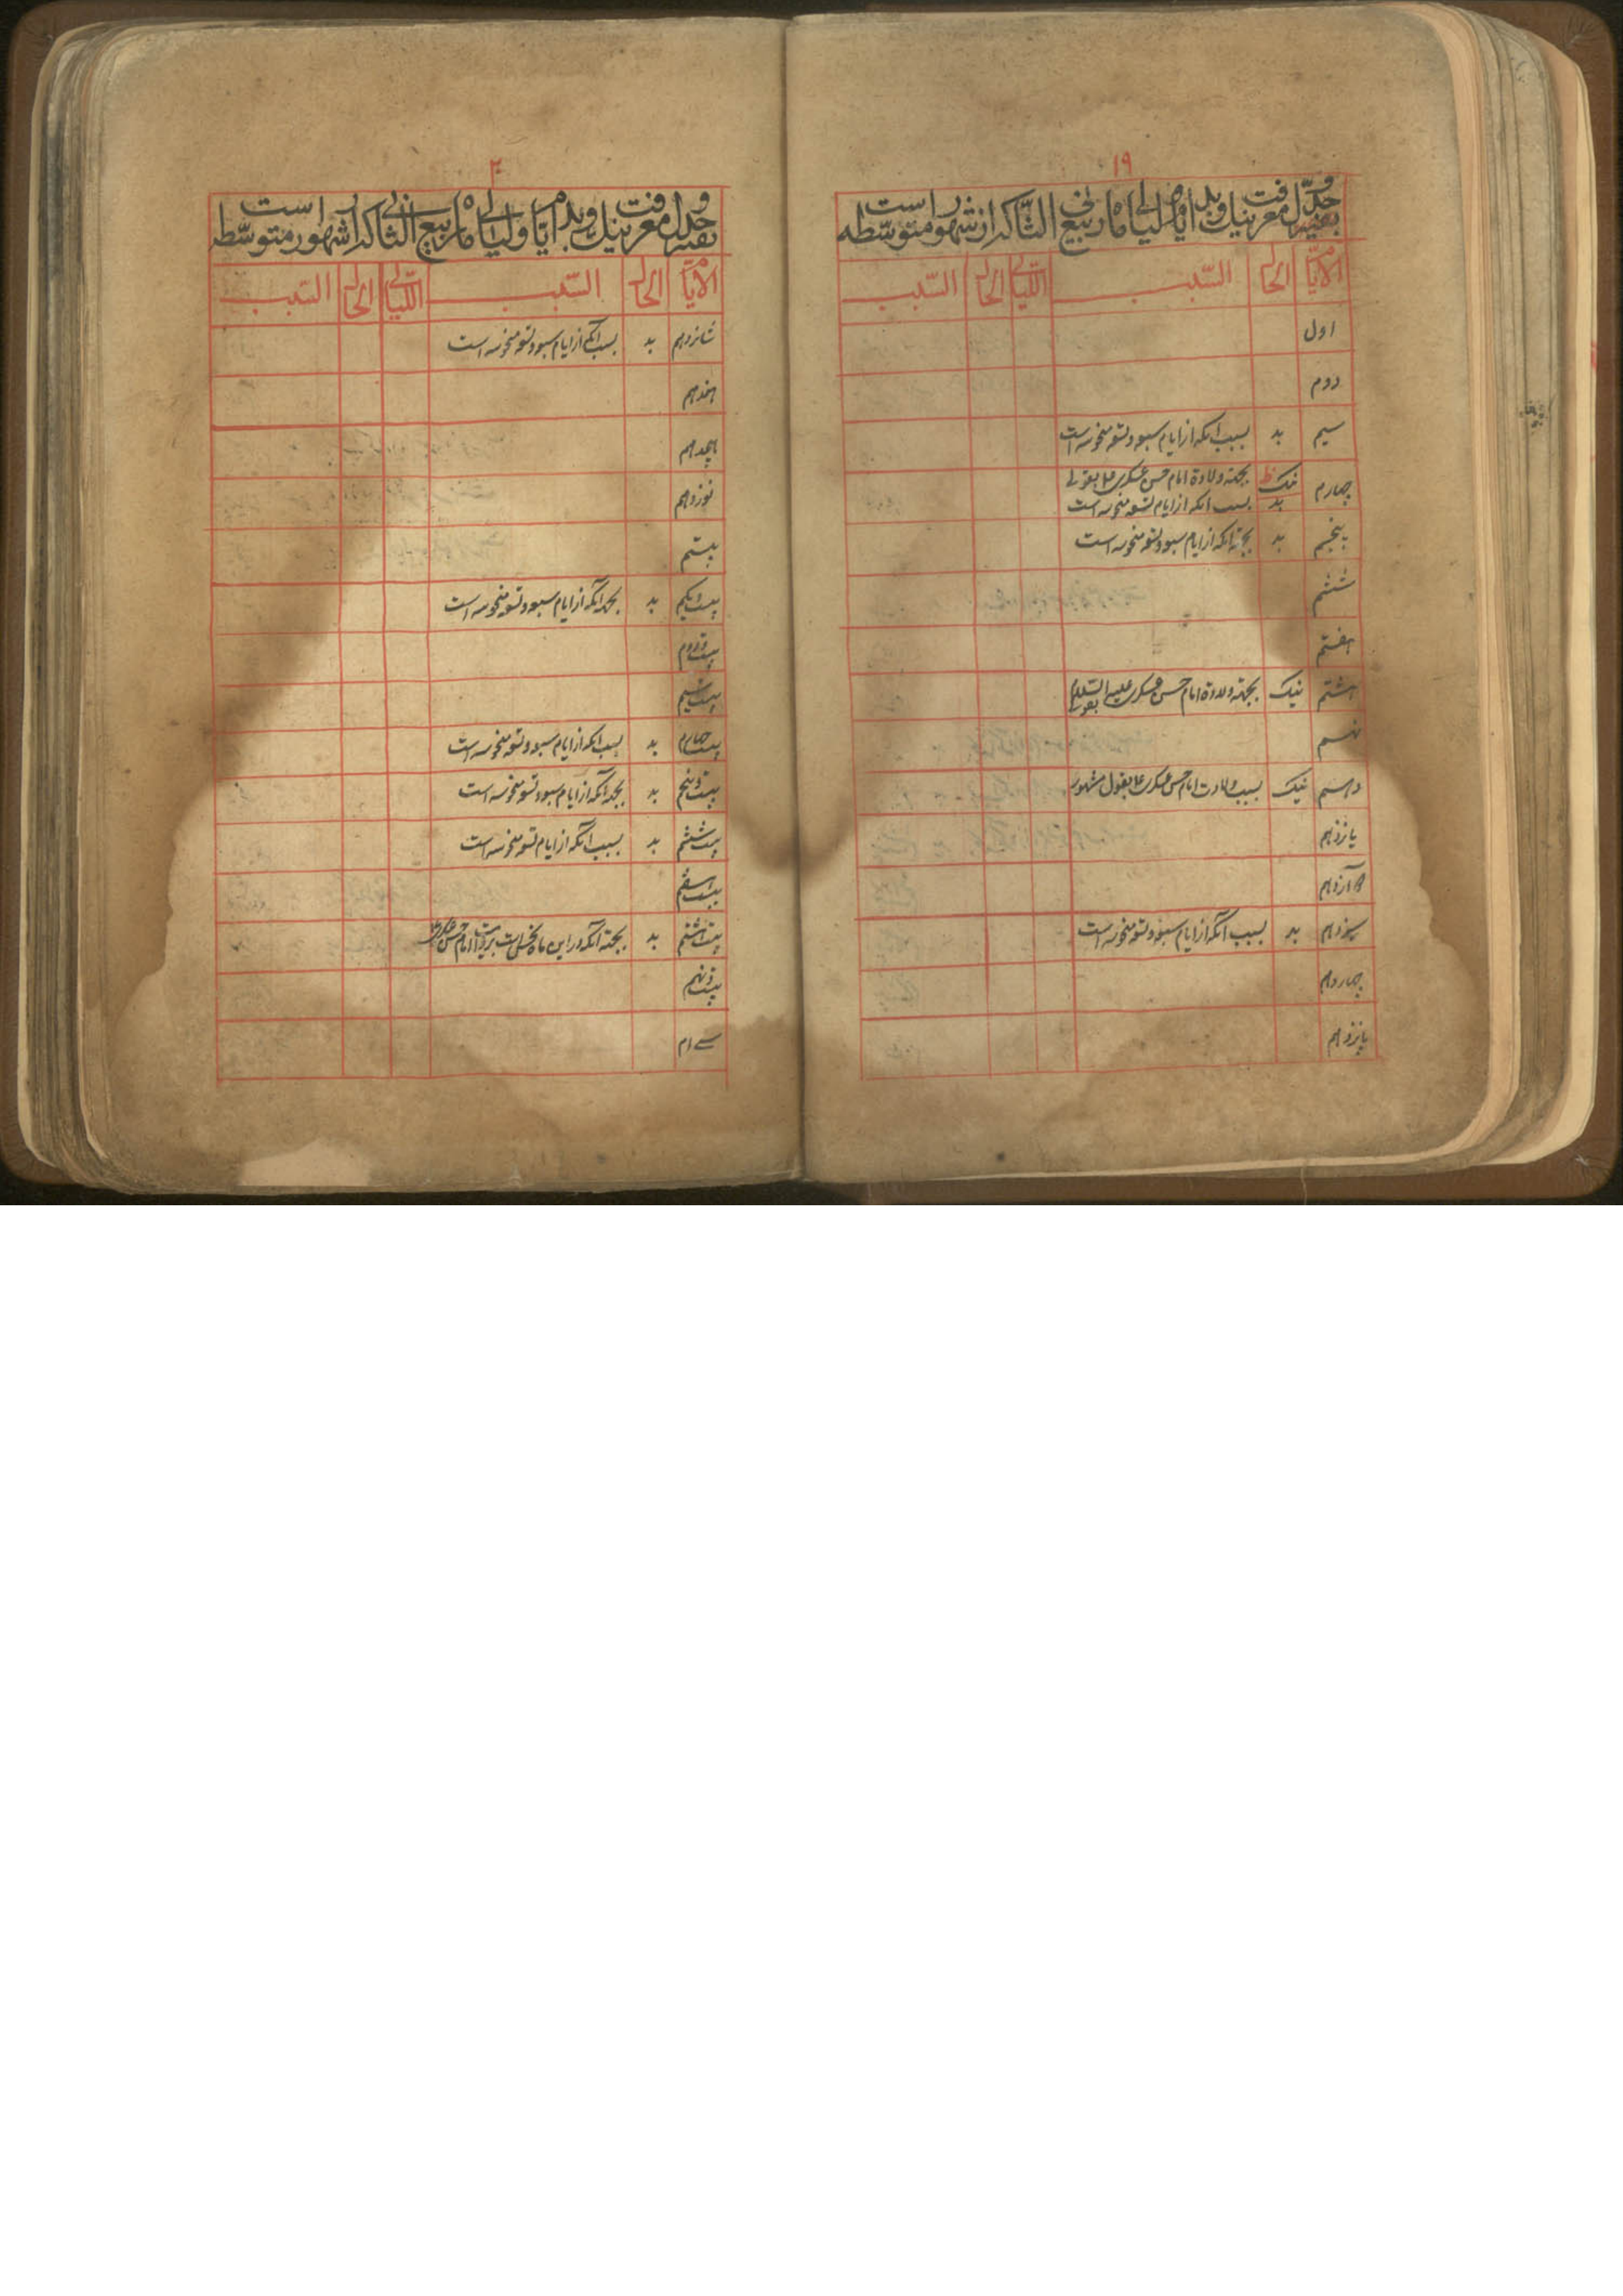 ١٩
جدول معرفت نیک و بد ایام و لیالی ماه ربیع الثانی که از شهور متوسطه است
الایام الحال السبب اللیالی الحال السبب
اول
دوم
سیم بد بسبب آنکه از ایام سبعه و تسعه منحوسه است
چهارم نیک بجهة ولادة امام حسن عسکری ع بقولی
بد بسبب آنکه از ایام تسعه منحوسه است
پنجم بد بجهة آنکه از ایام سبعه و تسعه منحوسه است
ششم
هفتم
هشتم نیک بجهة ولادة امام حسن عسکری علیه السلام بقولی
نهم
دهم نیک بسبب ولادت امام حسن عسکری ع بقول مشهور
یازدهم
دوازدهم
سیزدهم بد بسبب آنکه از ایام سبعه و تسعه منحوسه است
چهاردهم
پانزدهم
٢٠
جدول معرفت نیک و بد ایام و لیالی ماه ربیع الثانی که از شهور متوسطه است
الایام الحال السبب اللیالی الحال السبب
شانزدهم بد بسبب آنکه از ایام سبعه و تسعه منحوسه است
هفدهم
هیجدهم
نوزدهم
بیستم
بیست و یکم بد بجهة آنکه از ایام سبعه و تسعه منحوسه است
بیست و دوم
بیست و سیم
بیست و چهارم بد بسبب آنکه از ایام سبعه و تسعه منحوسه است
بیست و پنجم بد بجهة آنکه از ایام سبعه و تسعه منحوسه است
بیست و ششم بد بسبب آنکه از ایام تسعه منحوسه است
بیست و هفتم
بیست و هشتم بد بجهة آنکه در این ماه نحس است بروایت امام حسن عسکری ع
بیست و نهم
سی ام